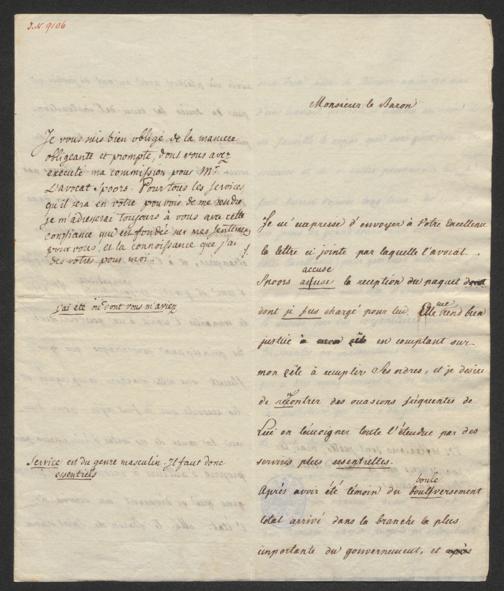 J.N. 9106
Je vous suis bien obligé de la maniere
obligeante et prompte, dont vous avez
exécuté ma commission pour Mr
L'avocat Spoors. Pour tous les services
qu'il sera en votre pouvoir de me rendre
je m'adresserai toujours à vous avec cette
confiance qui est fondée sur mes sentimens
pour vous, et la connoissance que j'ai
des votres pour moi.
j'ai été dont vous m'aviez
Service est du genre masculin. Il faut donc
essentiels
Monsieur le Baron
Je m'empresse d'envoyer à Votre Excellence
la lettre ci jointe par laquelle l'avocat
accuse
Spoors accuse la réception du paquet
dont j fus chargé pour lui. Elle me rend bien
justice en comptant sur
mon zèle à remplir Ses ordres, et je désire
de rencontrer des occasions fréquentes de
Lui en témoigner toute l'étendue par des
services plus essentielles.
boule
Après avoir été témoin du boulversement
total arrivé dans la branche la plus
importante du gouvernement, et